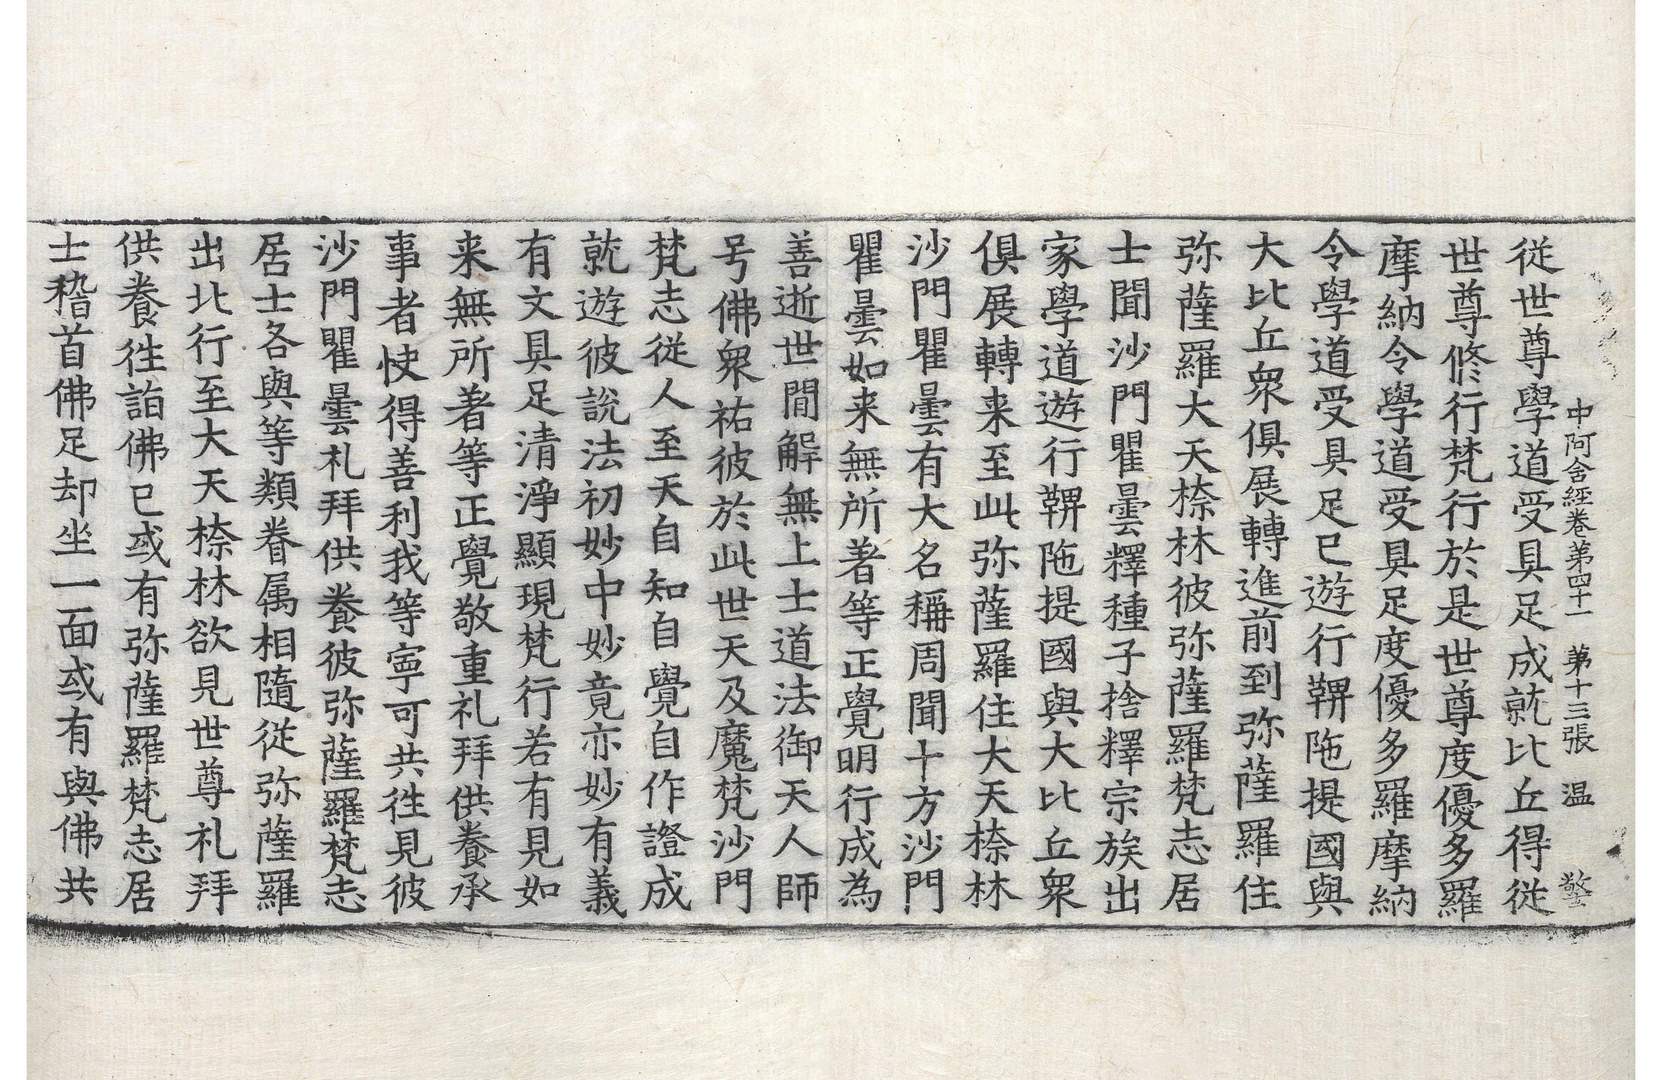 中阿含經卷第四十一　第十三張　温
從世尊學道受具足成就比丘得從
世尊修行梵行於是世尊度優多羅
摩納令學道受具足度優多羅摩納
令學道受具足已遊行鞞陁提國與
大比丘衆俱展轉進前到弥薩羅住
弥薩羅大天㮈林彼弥薩羅梵志居
士聞沙門瞿曇釋種子捨釋宗族出
家學道遊行鞞陁提國與大比丘衆
俱展轉来至此弥薩羅住大天㮈林
沙門瞿曇有大名稱周聞十方沙門
瞿曇如来無所著等正覺明行成為
善逝世間解無上士道法御天人師
号佛衆祐彼於此世天及魔梵沙門
梵志從人至天自知自覺自作證成
就遊彼說法初妙中妙竟亦妙有義
有文具足清淨顯現梵行若有見如
来無所著等正覺敬重礼拜供養承
事者快得善利我等寜可共徃見彼
沙門瞿曇礼拜供養彼弥薩羅梵志
居士各與等類眷属相隨從弥薩羅
出北行至大天㮈林欲見世尊礼拜
供養徃詣佛已或有弥薩羅梵志居
士稽首佛足却坐一面或有與佛共